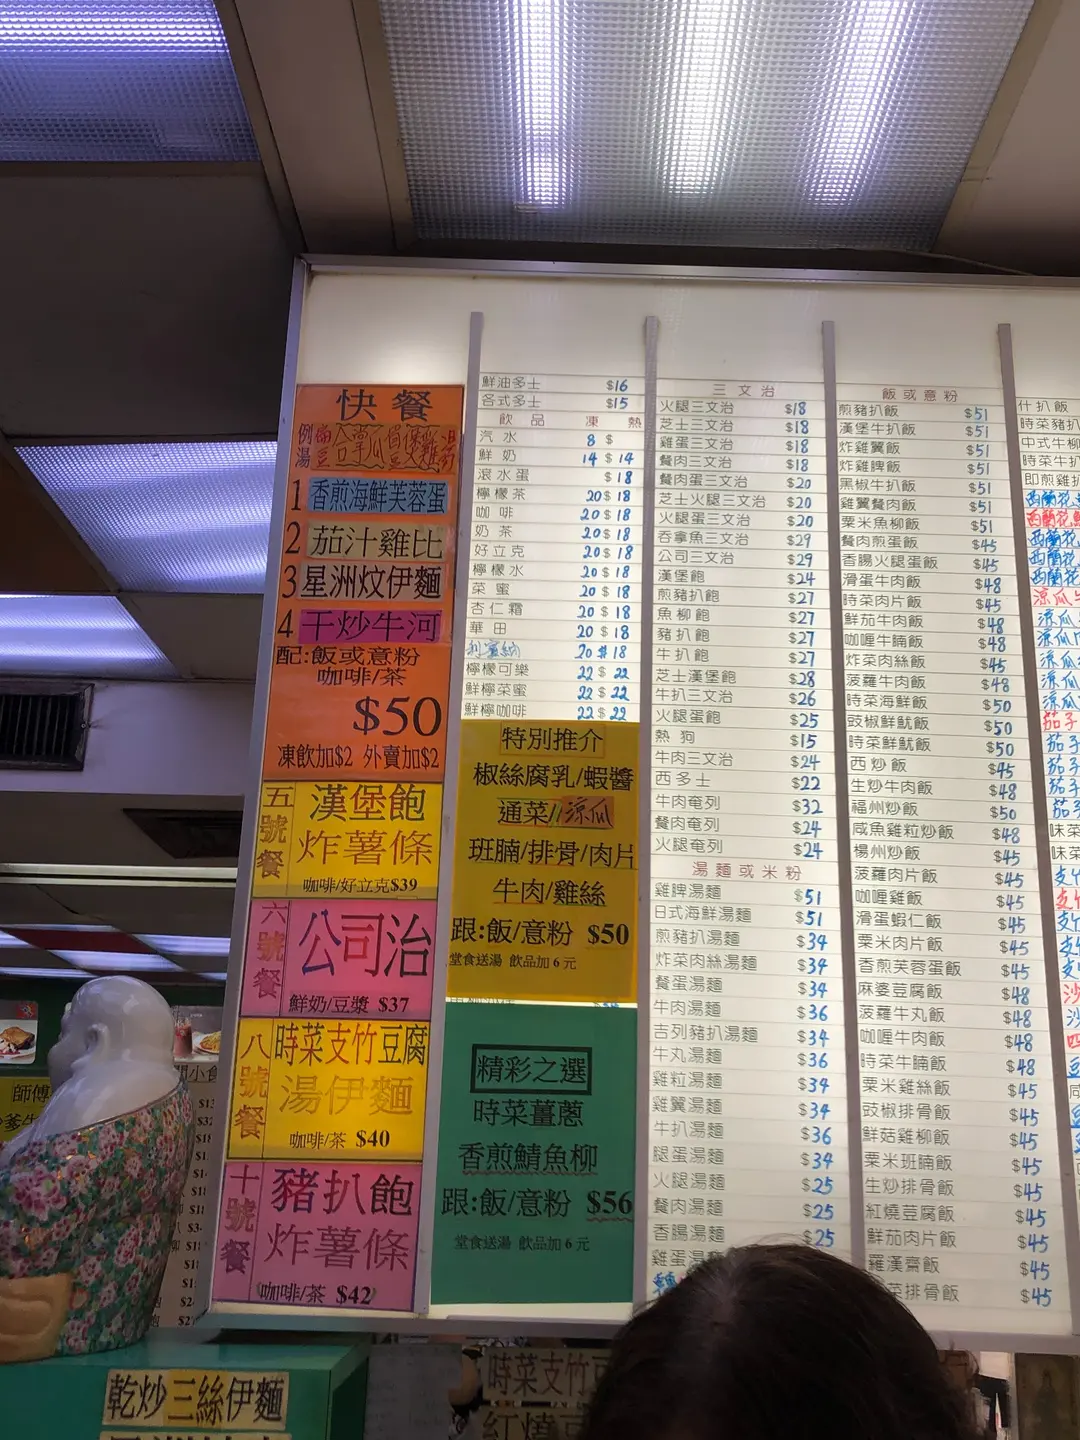 快餐
例湯
1 香煎海鮮芙蓉蛋
2 茄汁雞比
3 星洲炆伊麵
4 干炒牛河
配:飯或意粉
咖啡/茶
$50
凍飲加$2 外賣加$2
五號餐
漢堡飽
炸薯條
咖啡/好立克$39
六號餐
公司治
鮮奶/豆漿 $37
八號餐
時菜支竹豆腐
湯伊麵
咖啡/茶 $40
十號餐
豬扒飽
炸薯條
咖啡/茶 $42
鮮油多士 $16
各式多士 $15
飲品 凍 熱
汽水 8 $
鮮奶 14 $ 14
滾水蛋 $ 18
檸檬茶 20 $ 18
咖啡 20 $ 18
奶茶 20 $ 18
好立克 20 $ 18
檸檬水 20 $ 18
菜蜜 20 $ 18
杏仁霜 20 $ 18
華田 20 $ 18
利賓納 20 $ 18
檸檬可樂 22 $ 22
鮮檸菜蜜 22 $ 22
鮮檸咖啡 22 $ 22
特別推介
椒絲腐乳/蝦醬
通菜//涼瓜
班腩/排骨/肉片
牛肉/雞絲
跟:飯/意粉 $50
堂食送湯 飲品加6元
精彩之選
時菜薑蔥
香煎鯖魚柳
跟:飯/意粉 $56
堂食送湯 飲品加6元
三文治
火腿三文治 $18
芝士三文治 $18
雞蛋三文治 $18
餐肉三文治 $18
餐肉蛋三文治 $20
芝士火腿三文治 $20
火腿蛋三文治 $20
吞拿魚三文治 $29
公司三文治 $29
漢堡飽 $24
煎豬扒飽 $27
魚柳飽 $27
豬扒飽 $27
牛扒飽 $27
芝士漢堡飽 $28
牛扒三文治 $26
火腿蛋飽 $25
熱狗 $15
牛肉三文治 $24
西多士 $22
牛肉奄列 $32
餐肉奄列 $24
火腿奄列 $24
湯麵或米粉
雞脾湯麵 $51
日式海鮮湯麵 $51
煎豬扒湯麵 $34
炸菜肉絲湯麵 $34
餐蛋湯麵 $34
牛肉湯麵 $36
吉列豬扒湯麵 $34
牛丸湯麵 $36
雞粒湯麵 $34
雞翼湯麵 $34
牛扒湯麵 $36
腿蛋湯麵 $34
火腿湯麵 $25
餐肉湯麵 $25
香腸湯麵 $25
雞蛋湯
飯或意粉
煎豬扒飯 $51
漢堡牛扒飯 $51
炸雞翼飯 $51
炸雞脾飯 $51
黑椒牛扒飯 $51
雞翼餐肉飯 $51
粟米魚柳飯 $51
餐肉煎蛋飯 $45
香腸火腿蛋飯 $45
滑蛋牛肉飯 $48
時菜肉片飯 $45
鮮茄牛肉飯 $48
咖喱牛腩飯 $48
炸菜肉絲飯 $45
菠蘿牛肉飯 $48
時菜海鮮飯 $50
豉椒鮮魷飯 $50
時菜鮮魷飯 $50
西炒飯 $45
生炒牛肉飯 $48
福州炒飯 $50
咸魚雞粒炒飯 $48
楊州炒飯 $45
菠蘿肉片飯 $45
咖喱雞飯 $45
滑蛋蝦仁飯 $45
粟米肉片飯 $45
香煎芙蓉蛋飯 $45
麻婆豆腐飯 $48
菠蘿牛丸飯 $48
咖喱牛肉飯 $48
時菜牛腩飯 $48
粟米雞絲飯 $45
豉椒排骨飯 $45
鮮菇雞柳飯 $45
粟米班腩飯 $45
生炒排骨飯 $45
紅燒豆腐飯 $45
鮮茄肉片飯 $45
羅漢齋飯 $45
菜排骨飯 $45
什扒飯
時菜豬扒
中式牛柳
時菜牛扒
即煎雞扒
西蘭花
西蘭花
西蘭花
西蘭花
西蘭花
涼瓜
涼瓜
涼瓜
涼瓜
涼瓜
涼瓜
茄子
茄子
茄子
茄子
茄子
味菜
味菜
支竹
支竹
支竹
師傅
小食
乾炒三絲伊麵
時菜支竹豆
紅燒豆